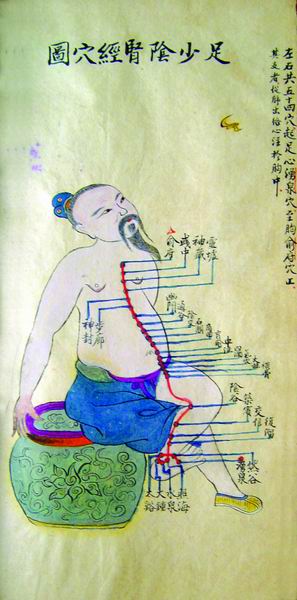 足少陰腎經穴圖
左右共五十四穴起足心湧泉穴至胸俞府穴止
其支者從肺出絡心注於胸中
靈墟
神藏
彧中
俞府
步廊
神封
幽門
通谷
石關
中注
大赫
橫骨
陰谷
築賓
交信
復溜
然谷
湧泉
照海
水泉
大鍾
太谿